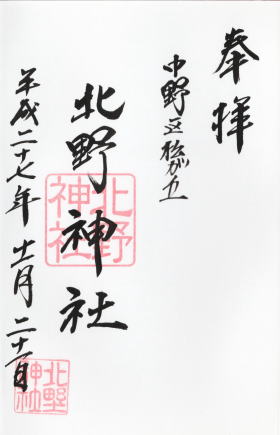 奉拝
中野区松が丘
北野神社
平成二十七年十一月二十一日
北野神社
北野神社